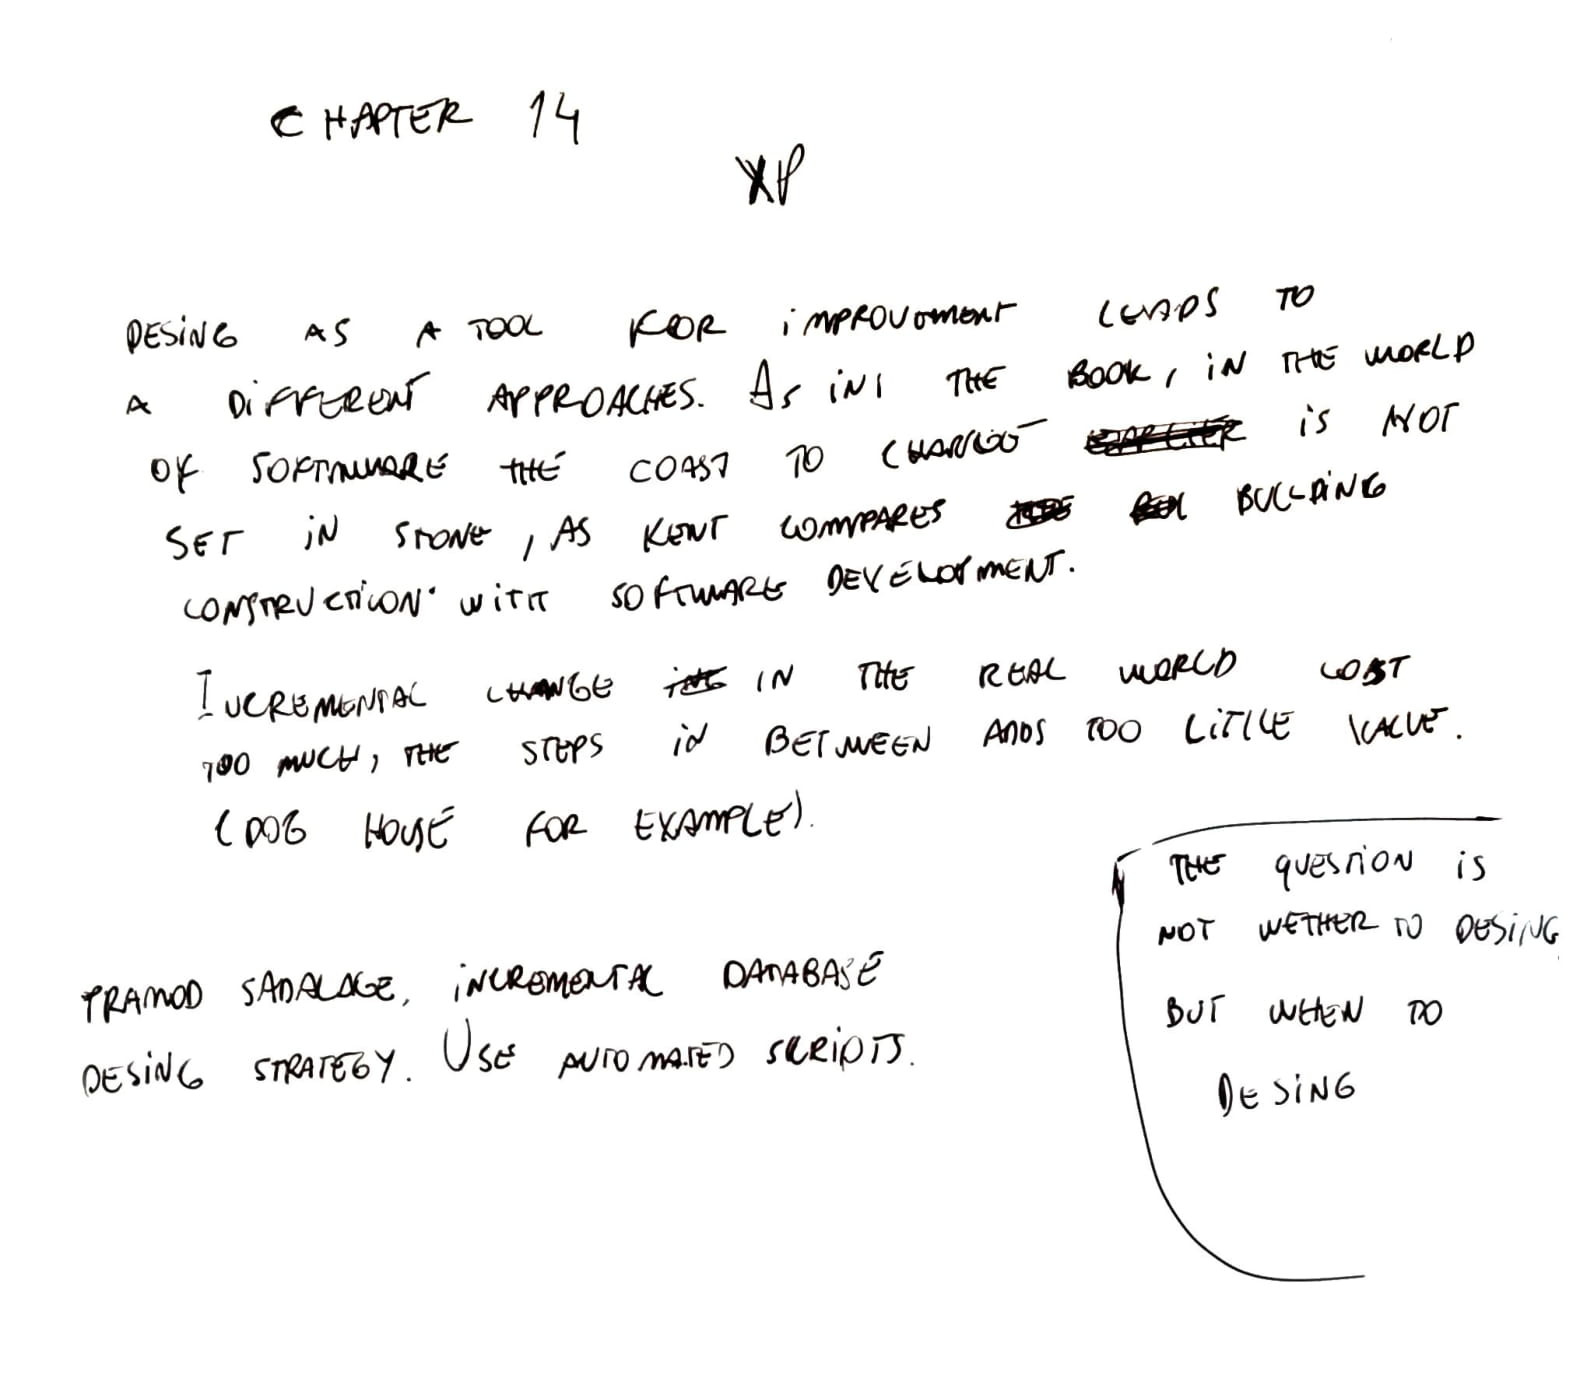 CHAPTER 14
XP
DESING AS A TOOL FOR iMPROVEMENT LEADS TO
A DIFFERENT APPROACHES. AS IN THE BOOK, IN THE WORLD
OF SOFTWARE THE COAST TO CHANGE IS NOT
SET IN STONE, AS KENT COMPARES BUILDING
CONSTRUCTION WITH SOFTWARE DEVELOPMENT.
INCREMENTAL CHANGE IN THE REAL WORLD COST
TOO MUCH, THE STEPS IN BETWEEN ADDS TOO LITTLE VALUE.
(DOG HOUSE FOR EXAMPLE).
THE QUESTION IS
NOT WETHER TO DESING
BUT WHEN TO
DESING
PRAMOD SADALAGE, INCREMENTAL DATABASE
DESING STRATEGY. USE AUTOMATED SCRIPTS.